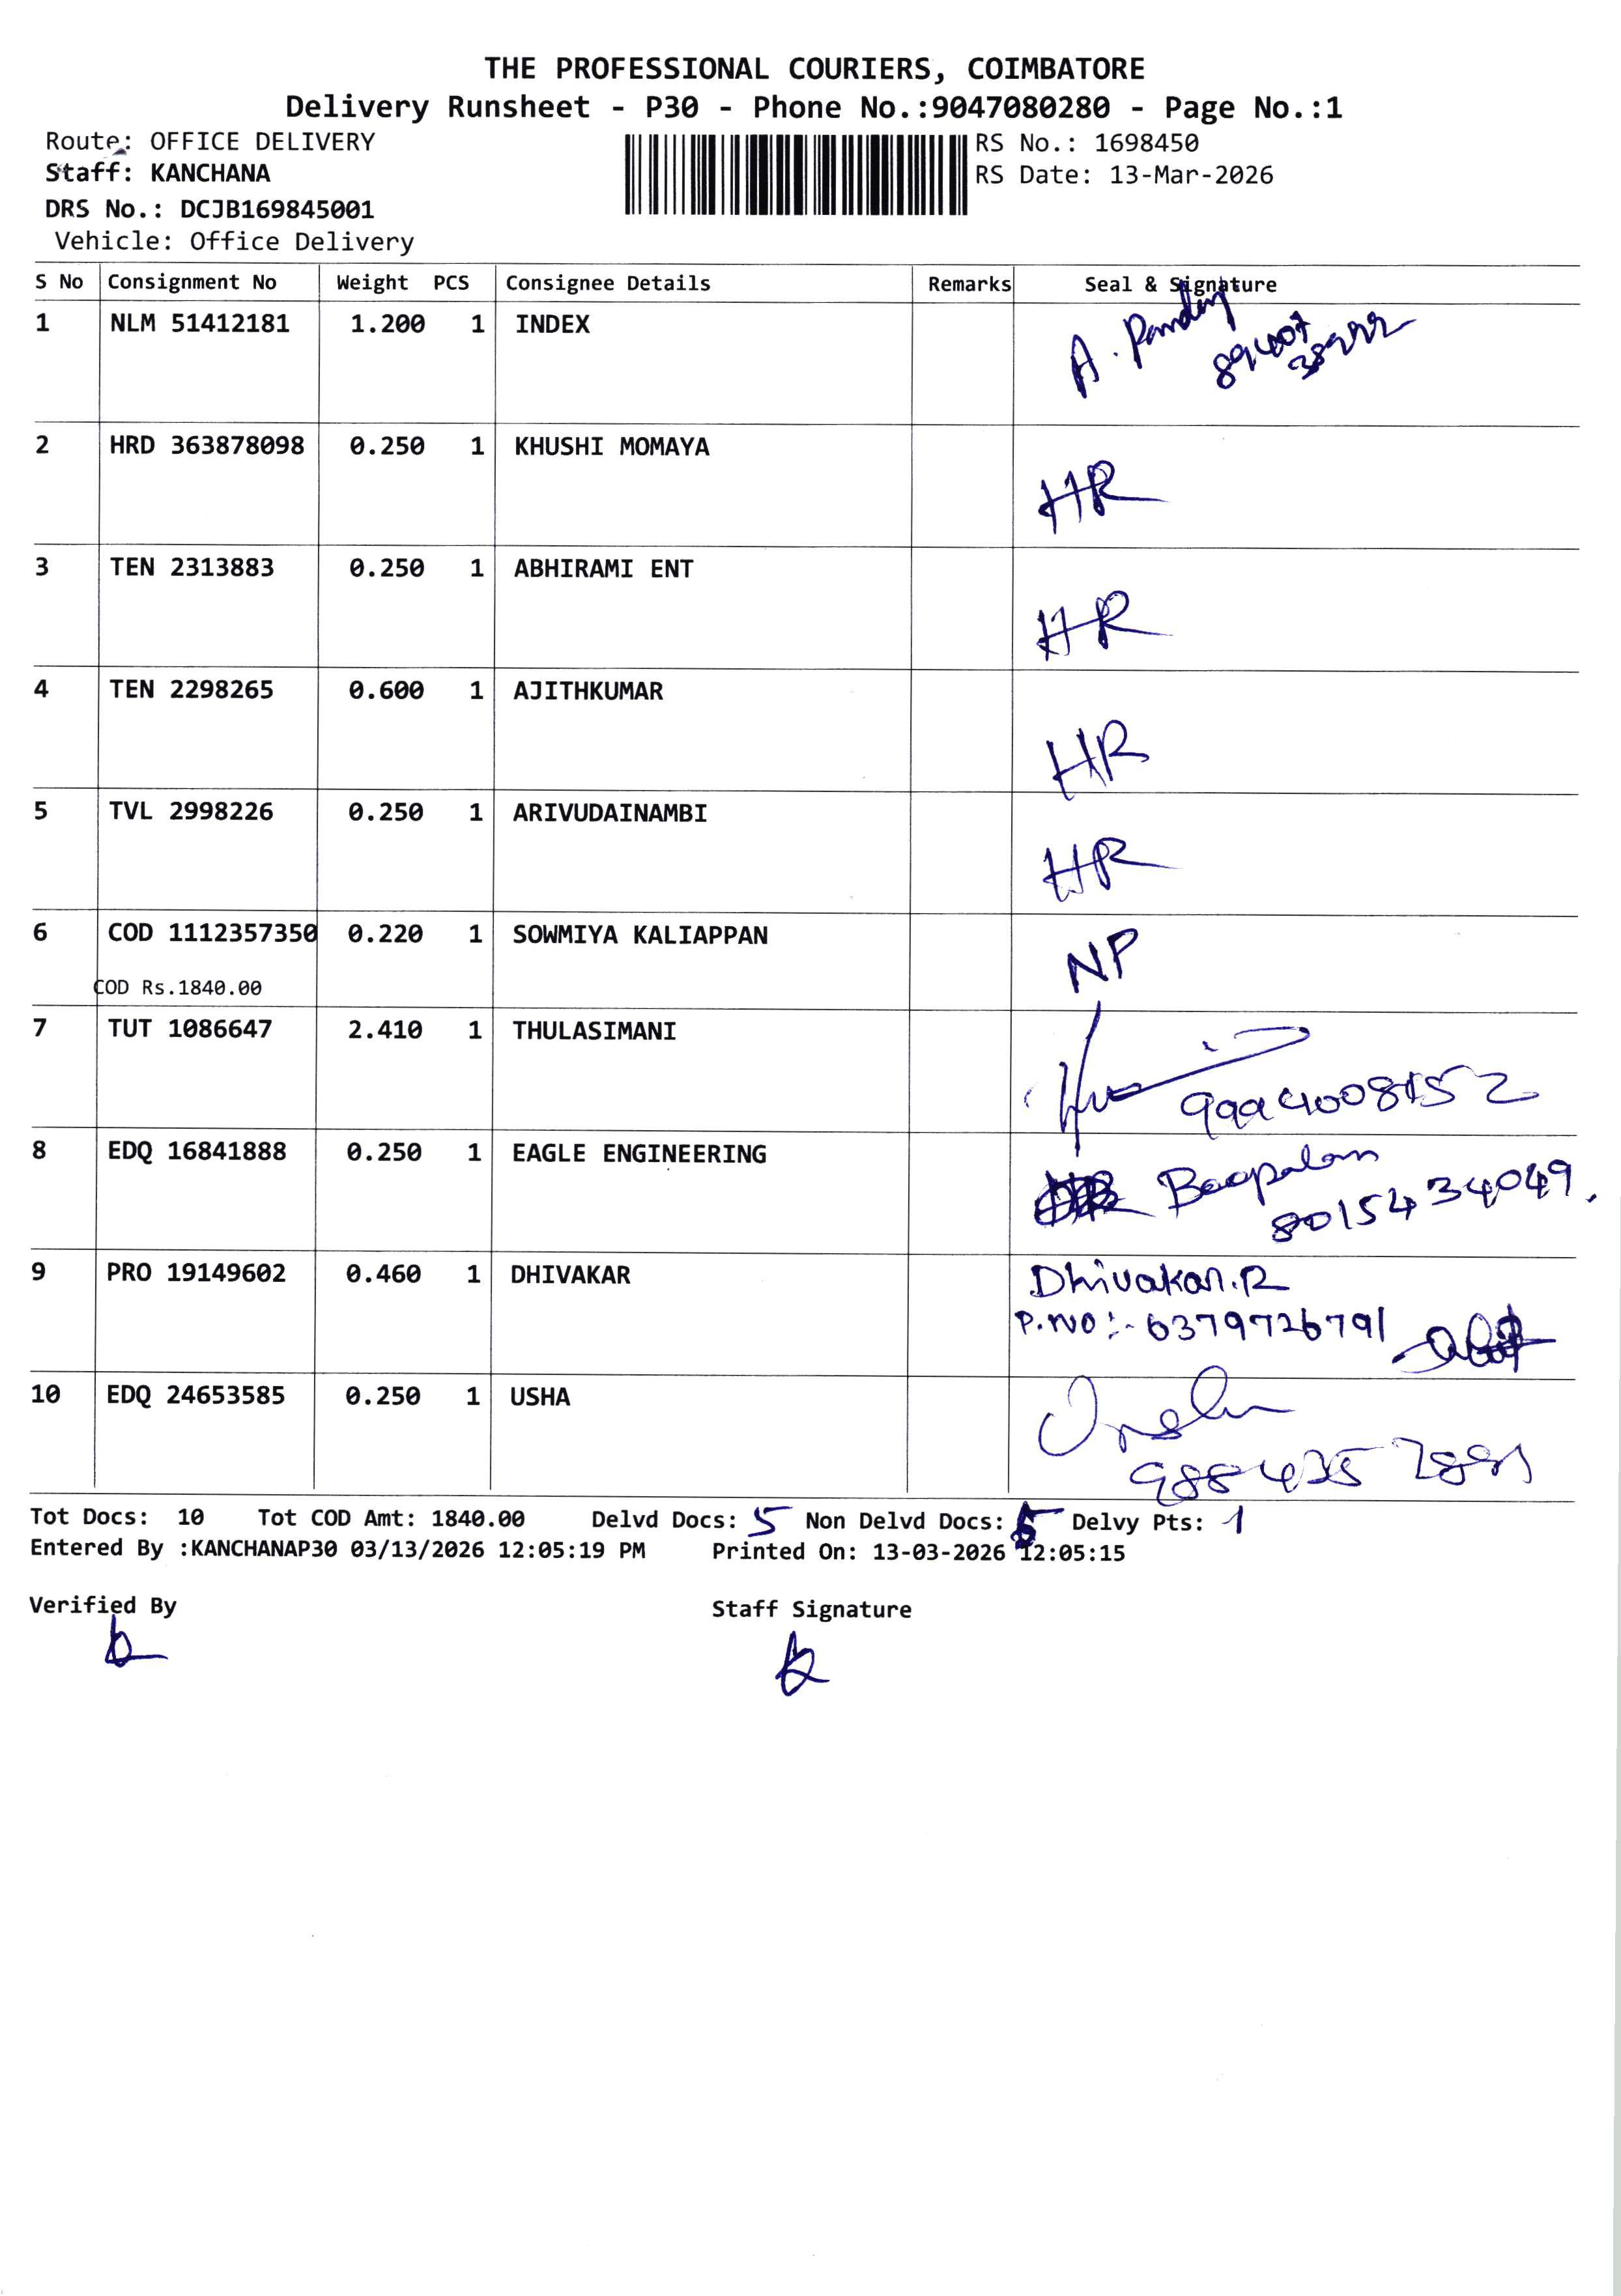 THE PROFESSIONAL COURIERS, COIMBATORE
Delivery Runsheet - P30 - Phone No.:9047080280 - Page No.:1
Route: OFFICE DELIVERY
RS No.: 1698450
Staff: KANCHANA
RS Date: 13-Mar-2026
DRS No.: DCJB169845001
Vehicle: Office Delivery
S No Consignment No Weight PCS Consignee Details Remarks Seal & Signature
1 NLM 51412181 1.200 1 INDEX
2 HRD 363878098 0.250 1 KHUSHI MOMAYA
HR
3 TEN 2313883 0.250 1 ABHIRAMI ENT
HR
4 TEN 2298265 0.600 1 AJITHKUMAR
HR
5 TVL 2998226 0.250 1 ARIVUDAINAMBI
HR
6 COD 1112357350 0.220 1 SOWMIYA KALIAPPAN NP
COD Rs.1840.00
7 TUT 1086647 2.410 1 THULASIMANI
8 EDQ 16841888 0.250 1 EAGLE ENGINEERING
8015434049.
9 PRO 19149602 0.460 1 DHIVAKAR Dhivakar.R
P.No:- 6379726791
10 EDQ 24653585 0.250 1 USHA
Tot Docs: 10 Tot COD Amt: 1840.00 Delvd Docs: 5 Non Delvd Docs: 5 Delvy Pts: 1
Entered By :KANCHANAP30 03/13/2026 12:05:19 PM Printed On: 13-03-2026 12:05:15
Verified By Staff Signature